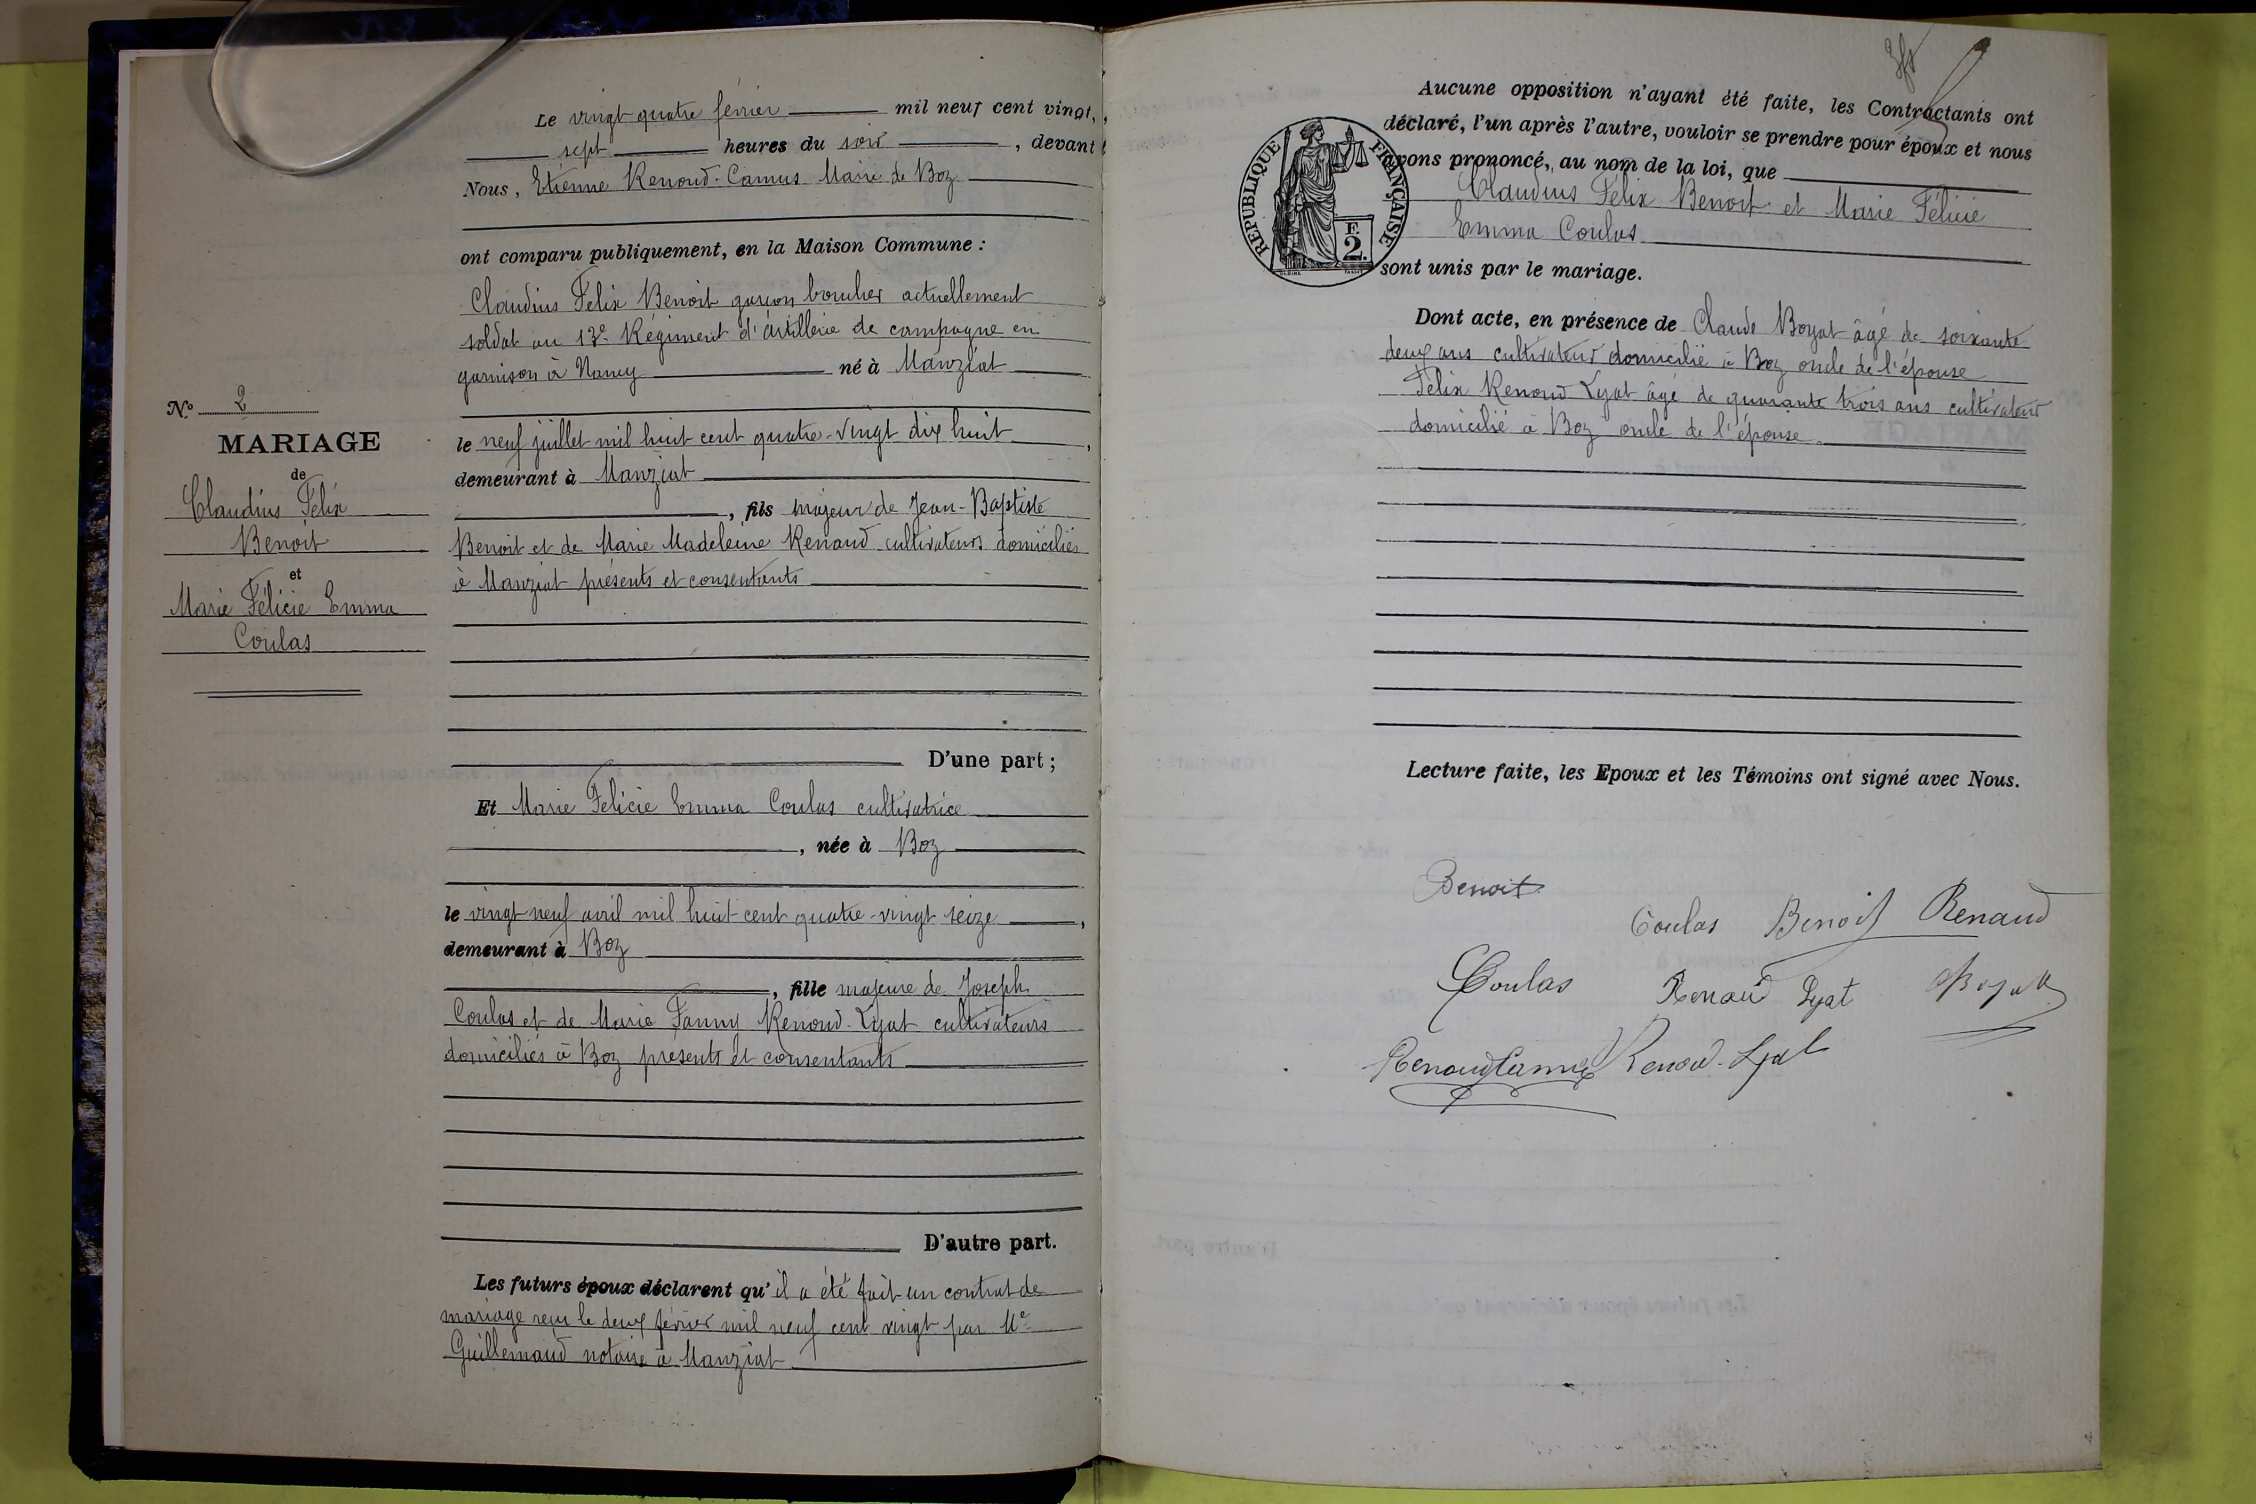 Le vingt quatre février mil neuf cent vingt,
sept heures du soir, devant
Nous, Etienne Renoud-Camus Maire de Boz
ont comparu publiquement, en la Maison Commune :
Claudius Félix Benoit garçon boucher actuellement
soldat au 13e Régiment d'artillerie de campagne en
garnison à Nancy né à Manziat
No 2
MARIAGE
de
Claudius Félix
Benoit
et
Marie Félicie Emma
Coulas
le neuf juillet mil huit cent quatre-vingt dix huit,
demeurant à Manziat
, fils majeur de Jean-Baptiste
Benoit et de Marie Madeleine Renaud cultivateurs domiciliés
à Manziat présents et consentants
D'une part ;
Et Marie Félicie Emma Coulas cultivatrice
, née à Boz
le vingt neuf avril mil huit cent quatre-vingt seize,
demeurant à Boz
, fille majeure de Joseph
Coulas et de Marie Fanny Renoud-Lyat cultivateurs
domiciliés à Boz présents et consentants
D'autre part.
Les futurs époux déclarent qu'il a été fait un contrat de
mariage reçu le deux février mil neuf cent vingt par Me
Guillemaud notaire à Manziat
Aucune opposition n'ayant été faite, les Contractants ont
déclaré, l'un après l'autre, vouloir se prendre pour époux et nous
avons prononcé, au nom de la loi, que
Claudius Félix Benoit et Marie Félicie
Emma Coulas
sont unis par le mariage.
RÉPUBLIQUE FRANÇAISE
F.
2.
Dont acte, en présence de Claude Boyat âgé de soixante
deux ans cultivateur domicilié à Boz oncle de l'épouse
Félix Renoud Lyat âgé de quarante trois ans cultivateur
domicilié à Boz oncle de l'épouse.
Lecture faite, les Epoux et les Témoins ont signé avec Nous.
Benoit
Coulas Benoit Renaud
Coulas Renoud Lyat Boyat
Renoud Camus Renoud-Lyat